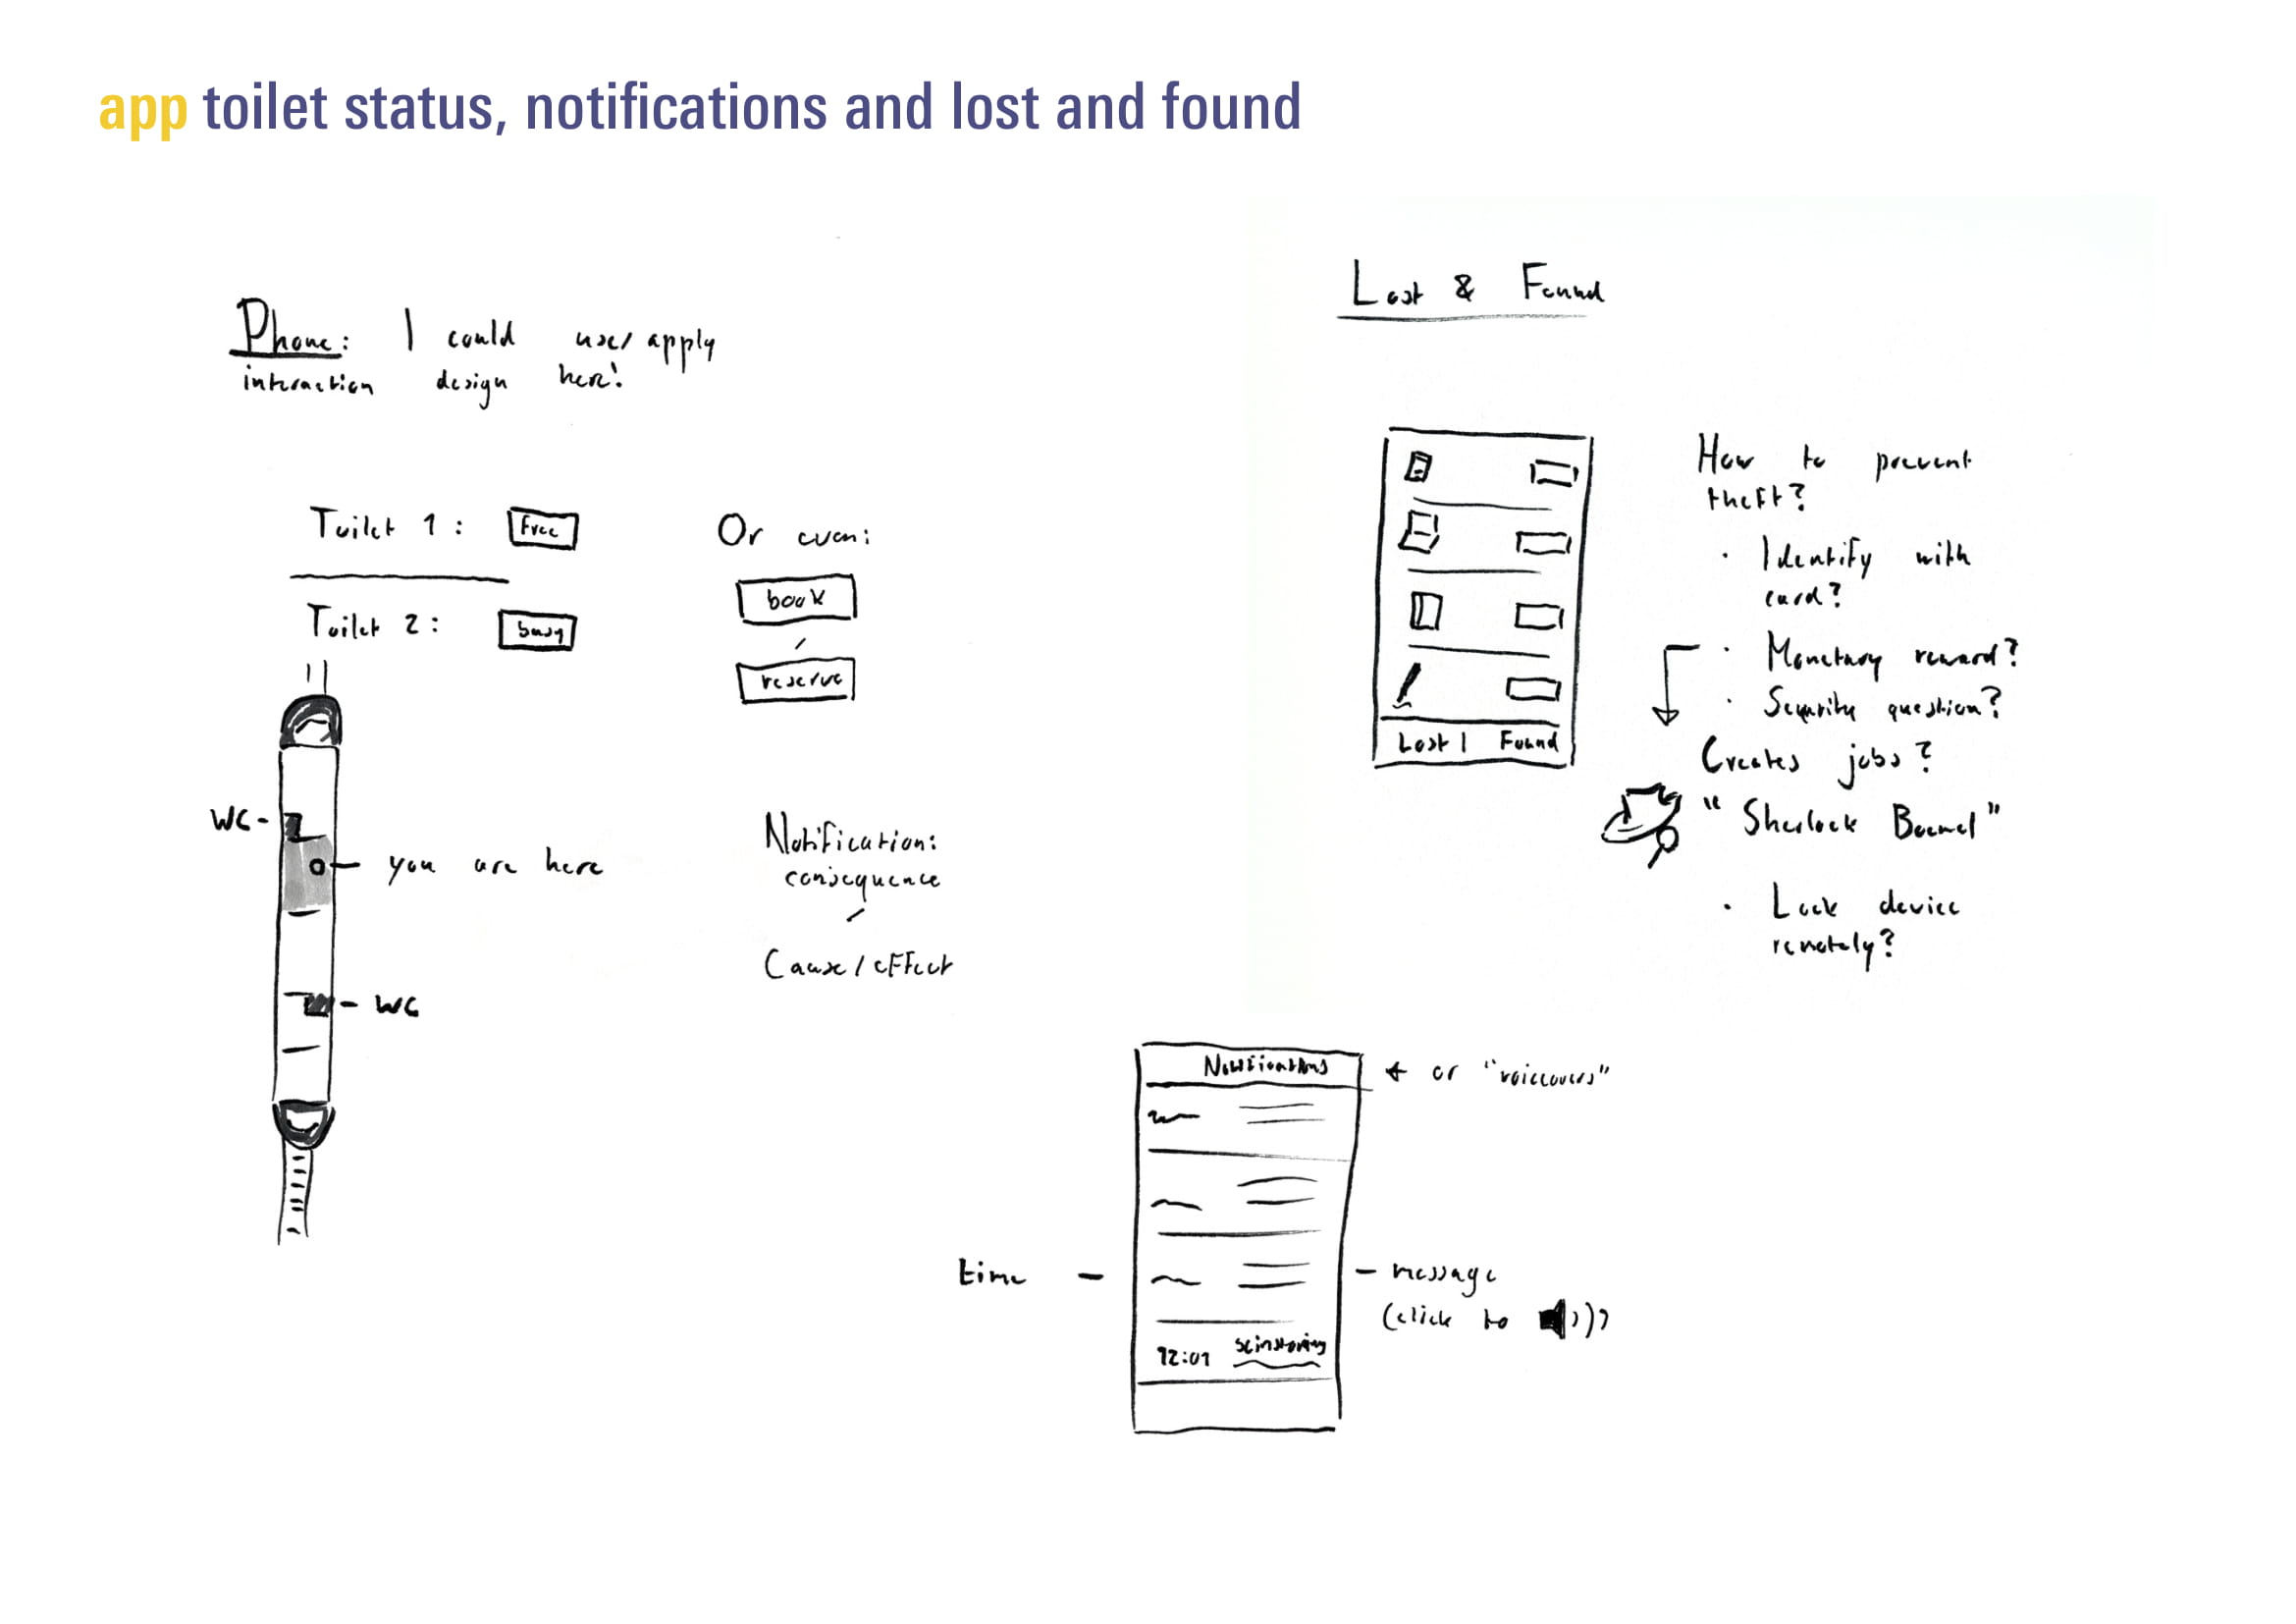 app toilet status, notifications and lost and found
Phone: I could use/apply
interaction design here!
Toilet 1: Free
Toilet 2: busy
Or even:
book
/
reserve
WC -
- you are here
- WC
Notification:
consequence
/
Cause/effect
Lost & Found
Lost | Found
How to prevent
theft?
· Identify with
card?
· Monetary reward?
· Security question?
Creates jobs?
"Sherlock Boemel"
· Lock device
remotely?
Notifications
← or "voiceovers"
time -
- message
(click to
12:01